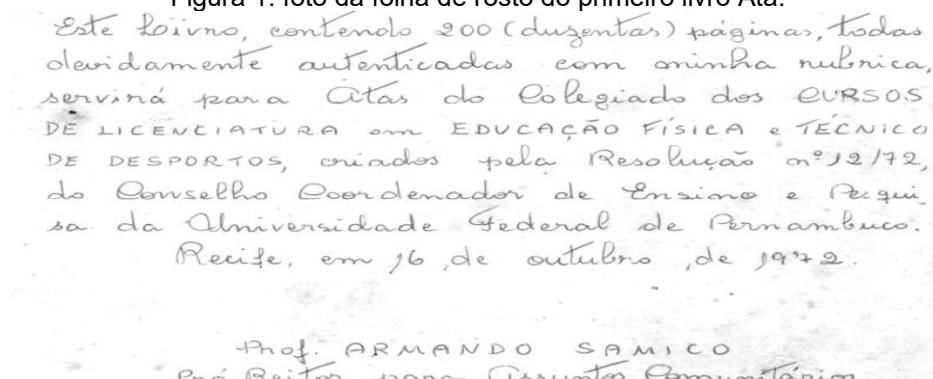 Figura 1: foto da folha de rosto do primeiro livro Ata.
Este Livro, contendo 200 (duzentas) páginas, todas
devidamente autenticadas com minha rubrica,
servirá para Atas do Colegiado dos CURSOS
DE LICENCIATURA em EDUCAÇÃO FÍSICA e TÉCNICO
DE DESPORTOS, criados pela Resolução nº 12/72,
do Conselho Coordenador de Ensino e Pesqui
sa da Universidade Federal de Pernambuco.
Recife, em 16 de outubro, de 1972.
Prof. ARMANDO SAMICO
Pró Reitor para Assuntos Comunitários